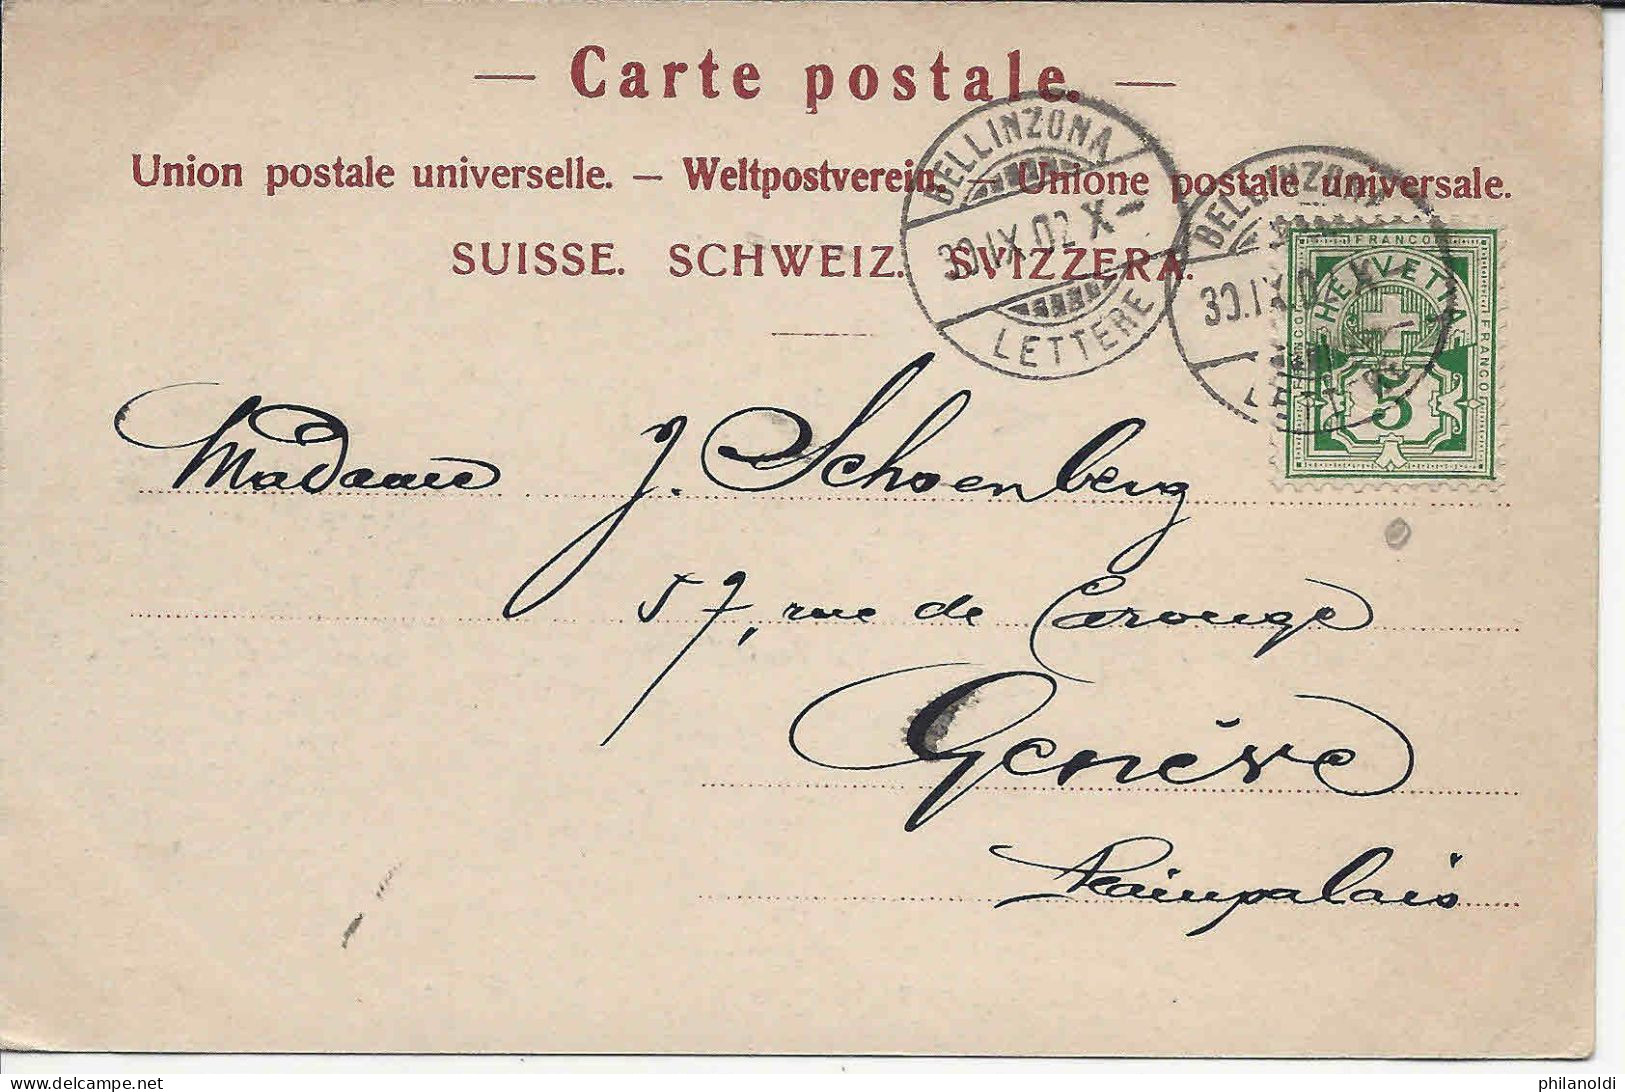 — Carte postale. —
Union postale universelle. — Weltpostverein. — Unione postale universale.
SUISSE. SCHWEIZ. SVIZZERA.
BELLINZONA
30.IX.02 X—
LETTERE
BELLINZONA
30.IX.0 X—
LETTERE
FRANCO
HELVETIA
FRANCO
FRANCO
5
Madame J. Schoenberg
57, rue de Carouge
Genève
Plainpalais
www.delcampe.net
philanoldi